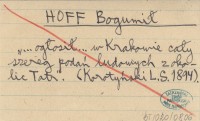 HOFF Bogumił
„... ogłosił... w Krakowie cały
szereg podań ludowych z oko-
lic Tatr. (Korotyński L.S, 1894).